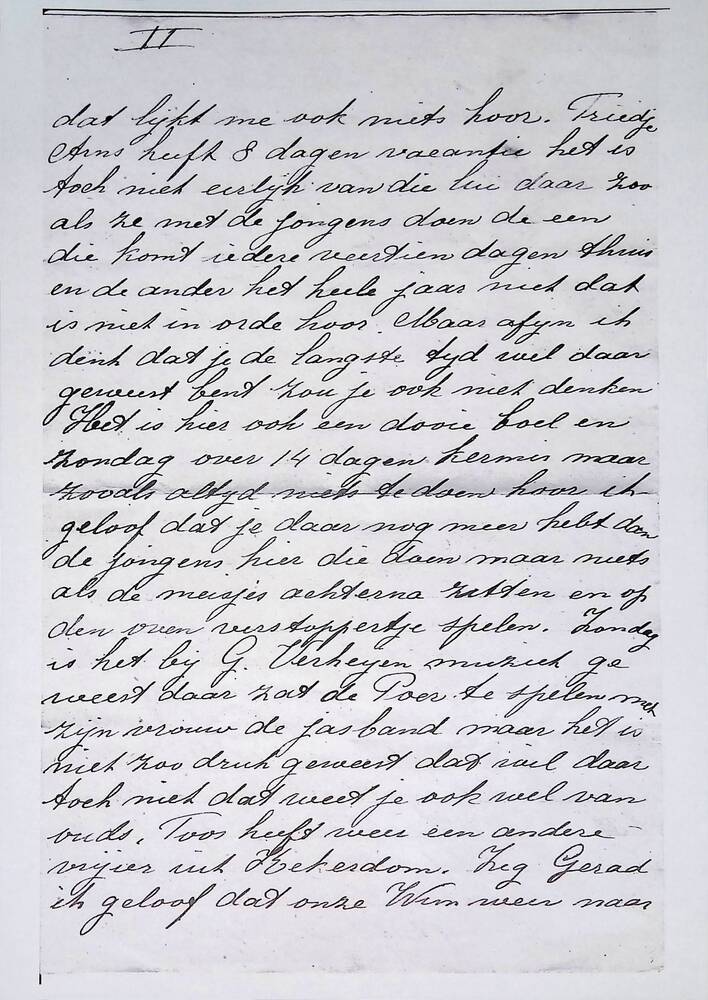 II
dat lijkt me ook niets hoor. Friedje
Arns heeft 8 dagen vacantie het is
toch niet eerlijk van die lui daar zoo
als ze met de jongens doen de een
die komt iedere veertien dagen thuis
en de ander het heele jaar niet dat
is niet in orde hoor. Maar afyn ik
denk dat je de langste tyd wel daar
geweest bent zou je ook niet denken
Het is hier ook een dooie boel en
zondag over 14 dagen kermis maar
zooals altyd niets te doen hoor ik
geloof dat je daar nog meer hebt dan
de jongens hier die doen maar niets
als de meisjes achterna zitten en op
den oven verstoppertje spelen. Zondag
is het bij G. Verheyen muziek ge
weest daar zat de Poer te spelen met
zijn vrouw de jasband maar het is
niet zoo druk geweest dat wil daar
toch niet dat weet je ook wel van
ouds. Toos heeft weer een andere
vrijer uit Kekerdom. Zeg Gerad
ik geloof dat onze Wim weer naar